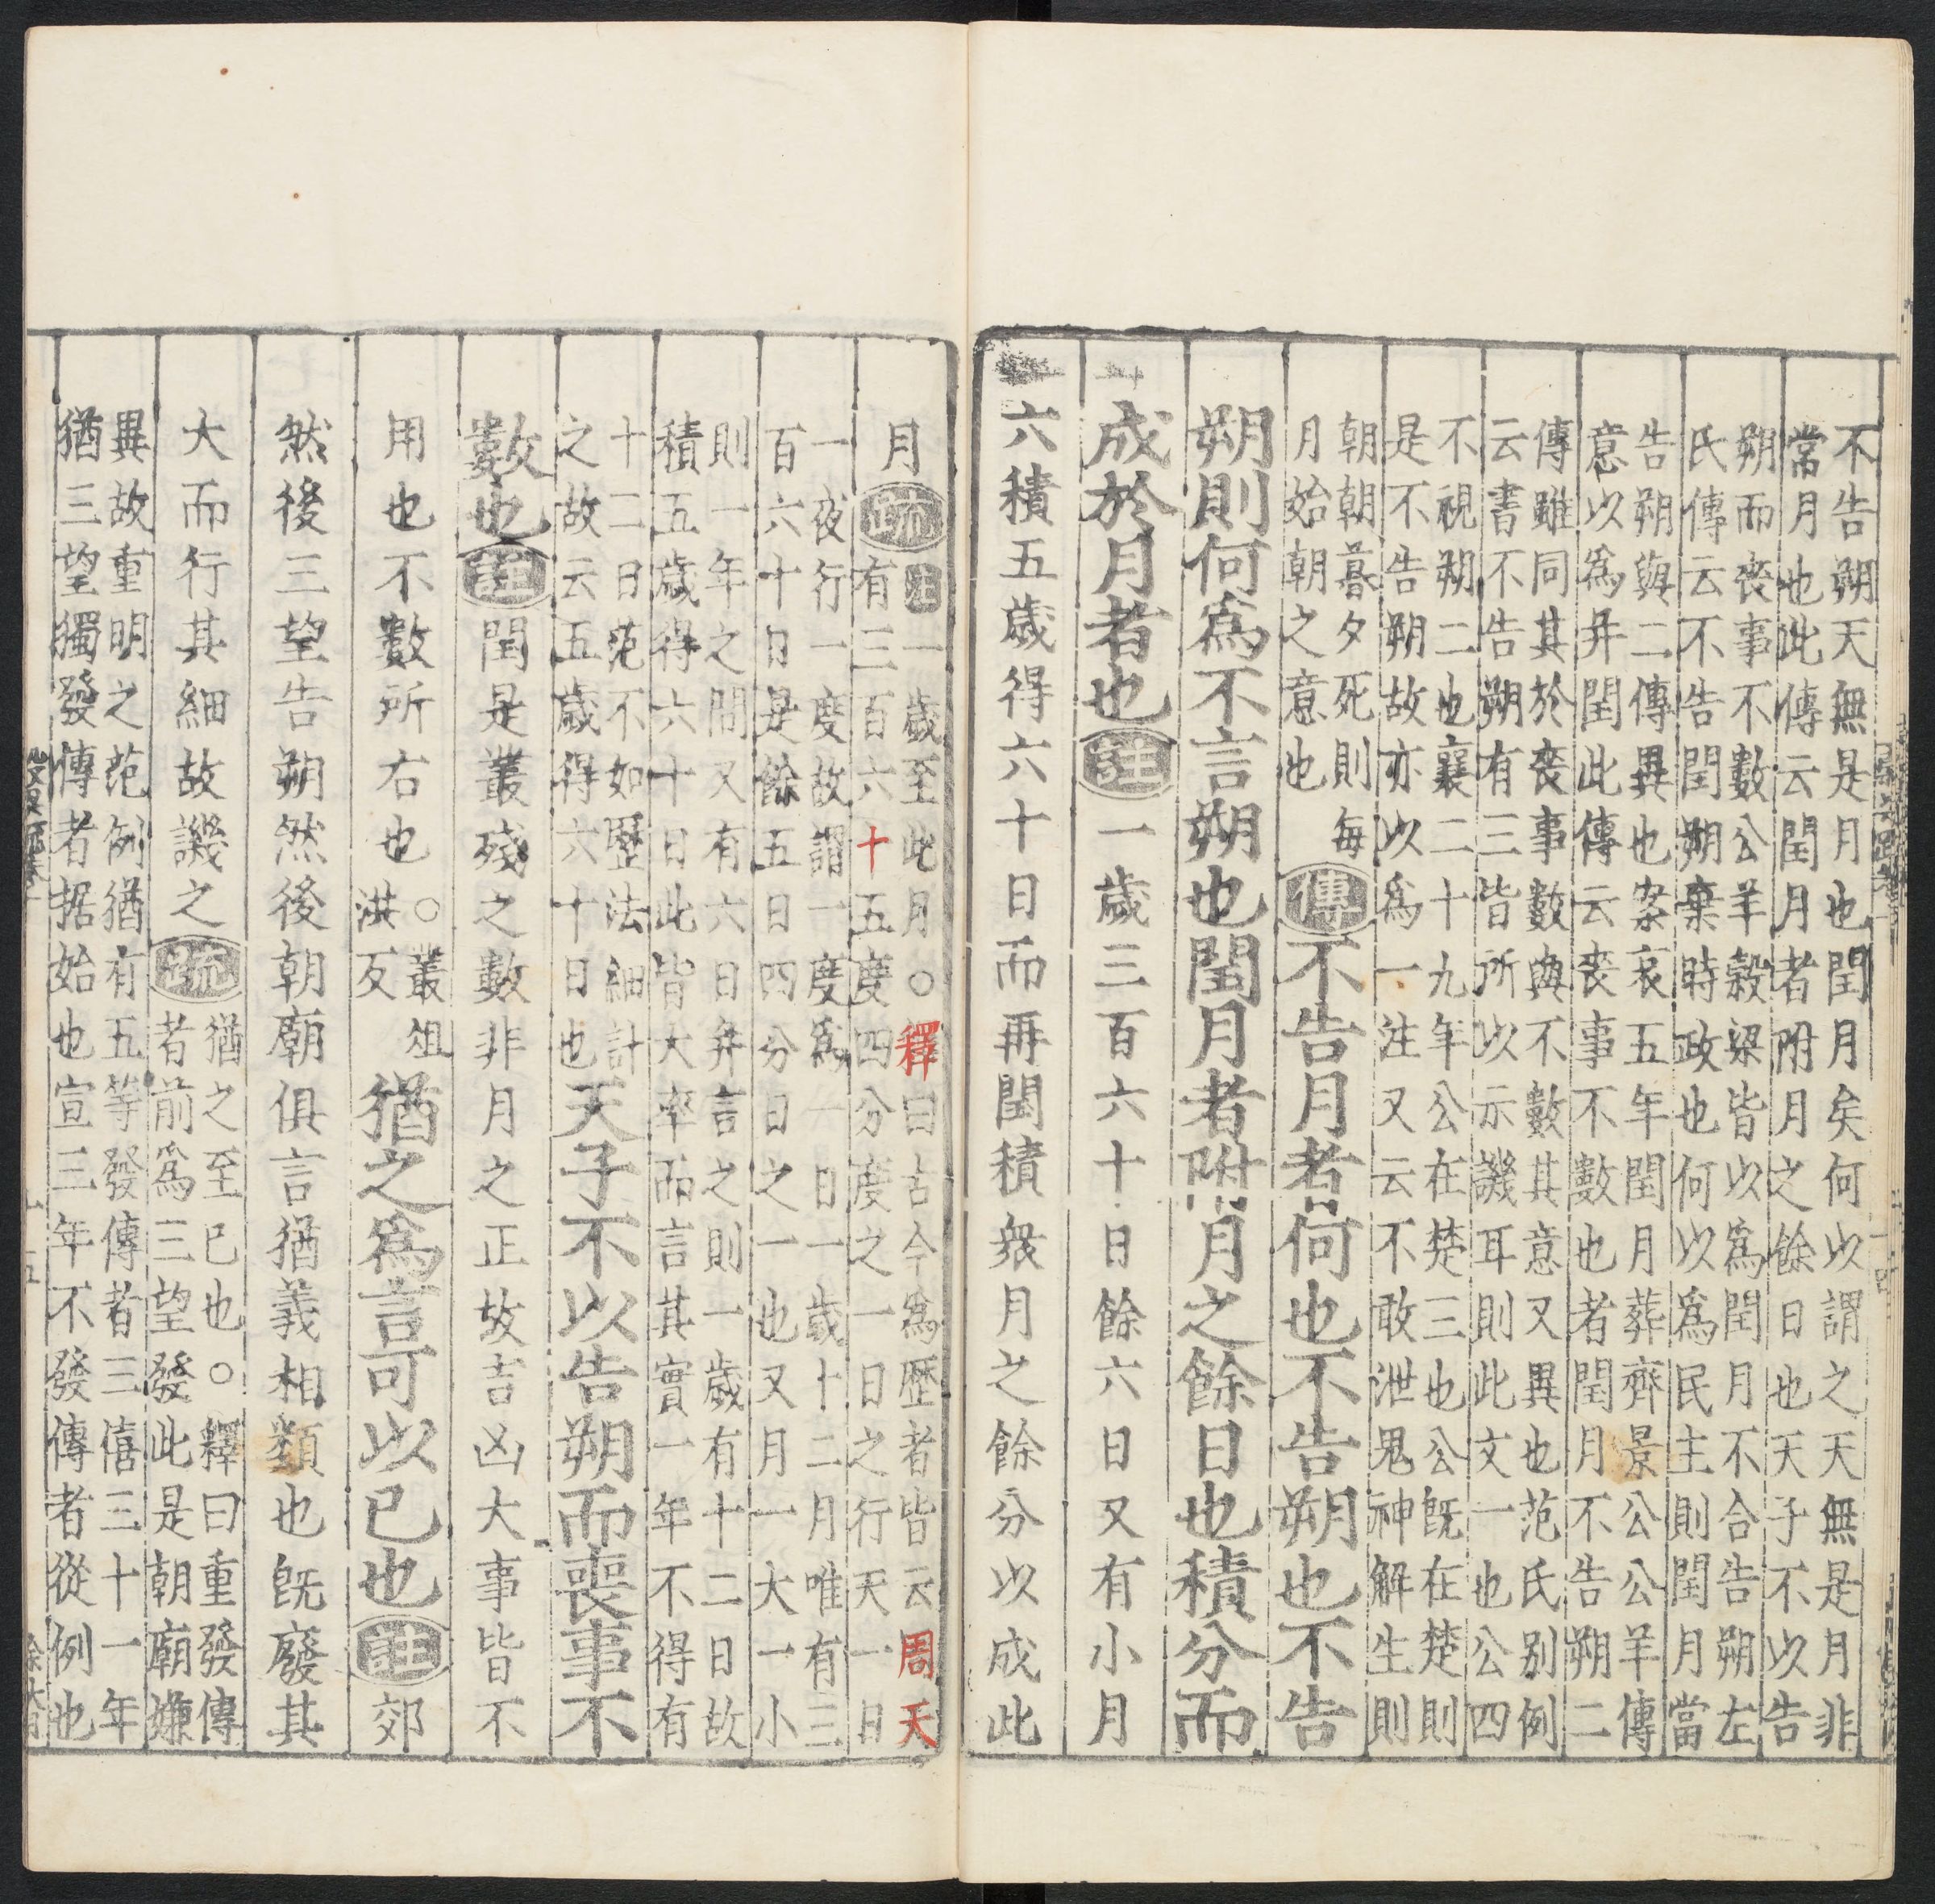 不告朔天無是月也閏月矣何以謂之天無是月非
常月也此傳云閏月者附月之餘日也天子不以告
朔而喪事不數公羊榖梁皆以爲閏月不合告朔左
氏傳云不告閏朔棄時政也何以爲民主則閏月當
告朔與二傳異也案哀五年閏月葬齊景公公羊傳
意以爲并閏此傳云喪事不數也者閏月不告朔二
傳雖同其於喪事數與不數其意又異也范氏别例
云書不告朔有三皆所以示譏耳則此文一也公四
不視朔二也襄二十九年公在楚三也公旣在楚則
是不告朔故亦以爲一注又云不敢泄鬼神解生則
朝朝暮夕死則每
月始朝之意也
傳不告月者何也不告朔也不告
朔則何爲不言朔也閏月者附月之餘日也積分而
成於月者也註一歲三百六十日餘六日又有小月
六積五歲得六十日而再閏積衆月之餘分以成此
月疏
注一歲至此月○釋曰古今爲歷者皆云周天
有三百六十五度四分度之一日之行天一日
一夜行一度故謂一度爲一日一歲十二月唯有三
百六十日是餘五日四分日之一也又月一大一小
則一年之間又有六日并言之則一歲有十二日故
積五歲得六十日此皆大率而言其實一年不得有
十二日范不如歷法細計
之故云五歲得六十日也
天子不以告朔而喪事不
數也註閏是叢殘之數非月之正故吉凶大事皆不
用也不數所右也
○叢俎
洪反
猶之爲言可以已也註郊
然後三望告朔然後朝廟俱言猶義相類也旣廢其
大而行其細故譏之疏
猶之至已也○釋曰重發傳
者前爲三望發此是朝廟嫌
異故重明之范例猶有五等發傳者三僖三十一年
猶三望獨發傳者据始也宣三年不發傳者從例也